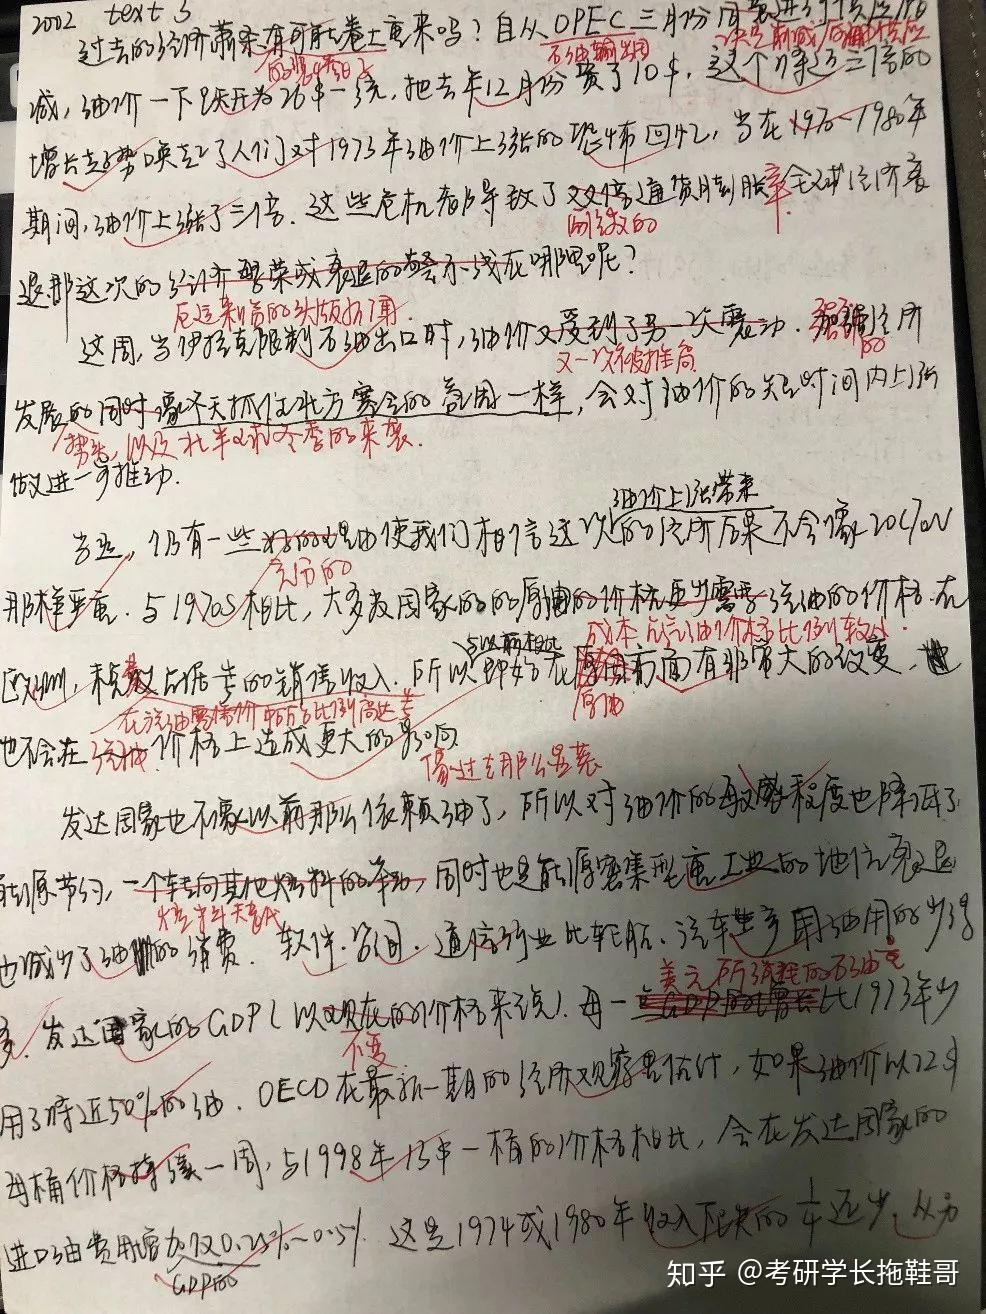 2002 text 3
过去的经济萧条有可能卷土重来吗？自从OPEC三月份
的噩梦
石油输出国
决定 减 后 供应
减，油价一下跃升为26$一桶，把去年12月份 了10$，这个 近三倍的
增长趋势唤起了人们对1973年油价上涨的恐怖回忆，当在1970~1980年
期间，油价上涨了三倍。这些危机都导致了双倍通货膨胀率全球经济衰
两位数的
退，那这次的经济繁荣或衰退的警示线在哪里呢？
这周，当伊拉克限制石油出口时，油价又受到了另一次震动。 经济
又一次被推高
强劲
的
发展的同时像冬天抓住北方寒冷的 一样，会对油价的短时间内上涨
势头，以及北半球冬季的来袭。
做进一步推动。
油价上涨带来
当然，仍有一些好的理由使我们相信这次的经济后果不会像20C70s
充分的
那样严重。与1970s相比，大多发达国家的 原油的价格更少需要 油的价格。在
成本 占 油价格比例较小。
欧洲，税 占据 的销售收入。所以即使在原油方面有非常大的改变，
与以前相比
在汽油零售价中所占比例高达
原油
也不会在汽油价格上造成更大的影响
像过去那么显著
发达国家也不像以前那么依赖油了，所以对油价的敏感程度也降低了
能源节约，一个转向其他燃料的举动，同时也是能源密集型重工业的地位衰退
燃料替代
也减少了油的消费。软件、咨询、通信行业比钢船、汽车生产用油用的少得
多。发达国家的GDP（以现在的价格来说）每一 比1973年少
美元所消耗的石油
不变
用了将近50%的油。OECD在最新一期的经济观察里估计，如果油价以22$
每桶价格持续一周，与1998年13$一桶的价格相比，会在发达国家的
进口油费用增加仅0.25%~0.5%
GDP的
这是1974或1980年收入 的1/4还少。从
知乎 @考研学长拖鞋哥